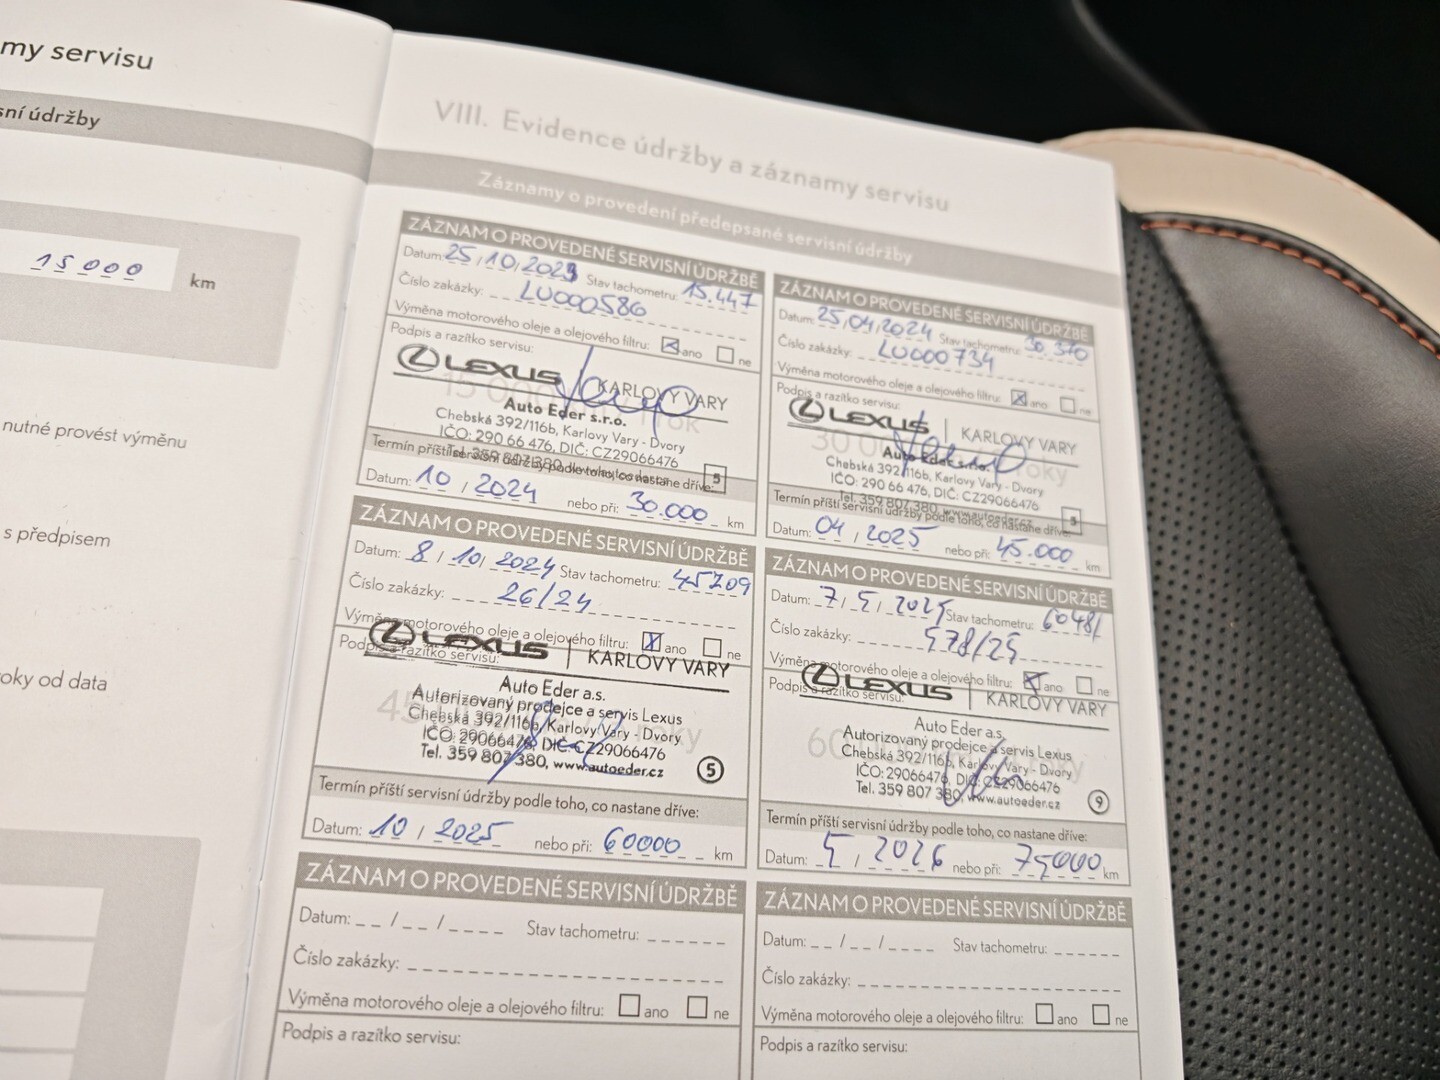 my servisu
sní údržby
15000 km
nutné provést výměnu
s předpisem
roky od data
VIII. Evidence údržby a záznamy servisu
Záznamy o provedení předepsané servisní údržby
ZÁZNAM O PROVEDENÉ SERVISNÍ ÚDRŽBĚ
Datum: 25/10/2023 Stav tachometru: 15.447
Číslo zakázky: LU000586
Výměna motorového oleje a olejového filtru: ano ne
Podpis a razítko servisu:
LEXUS | KARLOVY VARY
15 000 rok
Auto Eder s.r.o.
Chebská 392/116b, Karlovy Vary - Dvory
IČO: 290 66 476, DIČ: CZ29066476
Tel. 359 807 380
5
Termín příští servisní údržby podle toho, co nastane dříve:
Datum: 10 / 2024 nebo při: 30.000 km
ZÁZNAM O PROVEDENÉ SERVISNÍ ÚDRŽBĚ
Datum: 25/04/2024 Stav tachometru: 30.370
Číslo zakázky: LU000734
Výměna motorového oleje a olejového filtru: ano ne
Podpis a razítko servisu:
LEXUS | KARLOVY VARY
30 roky
Auto Eder s.r.o.
Chebská 392/116b, Karlovy Vary - Dvory
IČO: 290 66 476, DIČ: CZ29066476
Tel. 359 807 380, www.autoeder.cz
5
Termín příští servisní údržby podle toho, co nastane dříve:
Datum: 04 / 2025 nebo při: 45.000 km
ZÁZNAM O PROVEDENÉ SERVISNÍ ÚDRŽBĚ
Datum: 8 / 10 / 2024 Stav tachometru: 45209
Číslo zakázky: 26/24
Výměna motorového oleje a olejového filtru: ano ne
Podpis a razítko servisu:
LEXUS | KARLOVY VARY
Auto Eder a.s.
Autorizovaný prodejce a servis Lexus
Chebská 392/116b, Karlovy Vary - Dvory
45 roky
IČO: 29066476, DIČ: CZ29066476
Tel. 359 807 380, www.autoeder.cz
5
Termín příští servisní údržby podle toho, co nastane dříve:
Datum: 10 / 2025 nebo při: 60000 km
ZÁZNAM O PROVEDENÉ SERVISNÍ ÚDRŽBĚ
Datum: 7 / 5 / 2025 Stav tachometru: 60481
Číslo zakázky: 578/25
Výměna motorového oleje a olejového filtru: ano ne
Podpis a razítko servisu:
LEXUS | KARLOVY VARY
Auto Eder a.s.
Autorizovaný prodejce a servis Lexus
Chebská 392/116b, Karlovy Vary - Dvory
60 roky
IČO: 29066476, DIČ: CZ29066476
Tel. 359 807 380, www.autoeder.cz
9
Termín příští servisní údržby podle toho, co nastane dříve:
Datum: 5 / 2026 nebo při: 75000 km
ZÁZNAM O PROVEDENÉ SERVISNÍ ÚDRŽBĚ
Datum: _ _ / _ _ / _ _ _ _ Stav tachometru: _ _ _ _ _ _
Číslo zakázky:
Výměna motorového oleje a olejového filtru: ano ne
Podpis a razítko servisu:
ZÁZNAM O PROVEDENÉ SERVISNÍ ÚDRŽBĚ
Datum: _ _ / _ _ / _ _ _ _ Stav tachometru: _ _ _ _ _ _
Číslo zakázky:
Výměna motorového oleje a olejového filtru: ano ne
Podpis a razítko servisu: